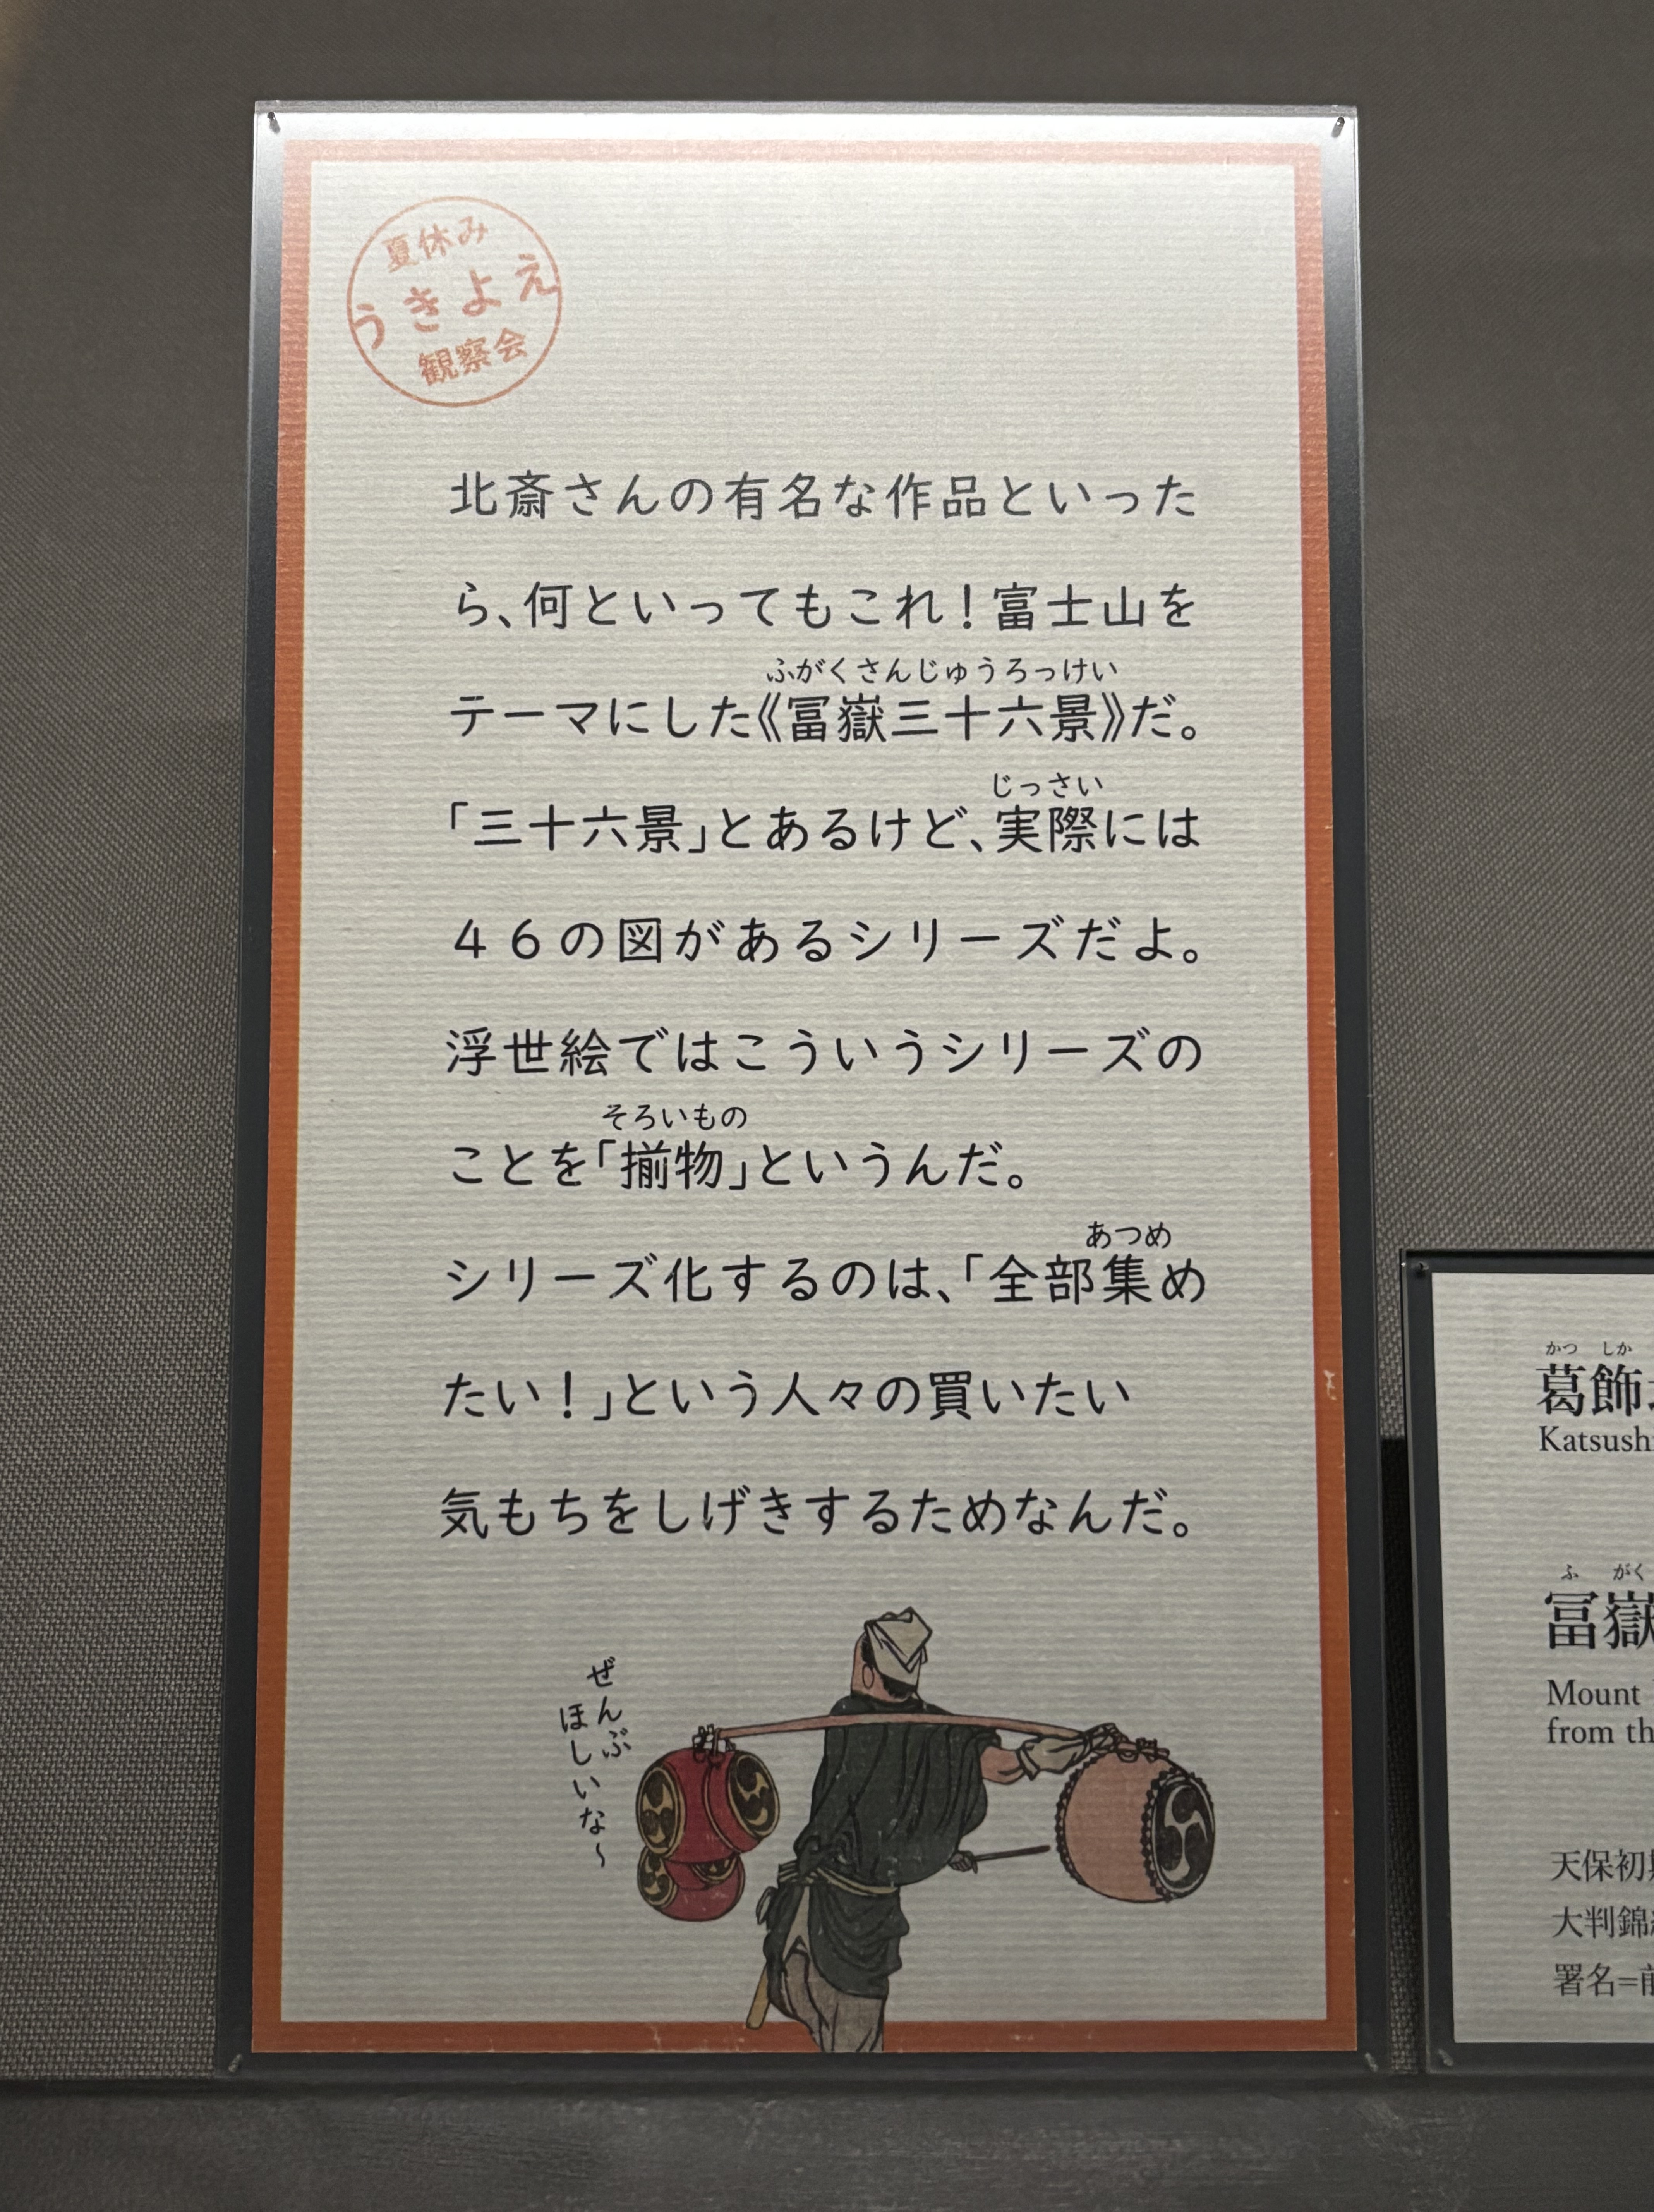 夏休み
うきよえ
観察会
北斎さんの有名な作品といった
ら、何といってもこれ！富士山を
ふがくさんじゅうろっけい
テーマにした《冨嶽三十六景》だ。
じっさい
「三十六景」とあるけど、実際には
４６の図があるシリーズだよ。
浮世絵ではこういうシリーズの
そろいもの
ことを「揃物」というんだ。
あつめ
シリーズ化するのは、「全部集め
たい！」という人々の買いたい
気もちをしげきするためなんだ。
ぜんぶ
ほしいな〜
かつ しか
葛飾
Katsushi
ふ がく
冨嶽
Mount
from th
天保初
大判錦
署名=前